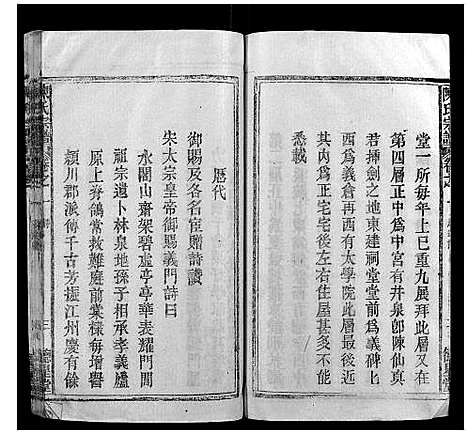 陳氏宗譜
堂一所每年上巳重九展拜此層之
第四層正中為中宮有井泉卽陳仙眞
君揷劍之地東建祠堂堂前為義倉
西為義倉再西有太學院此層最廣
其內為正宅宅後左右住屋甚多不能
悉載
歷代
御賜及各名宦贈詩讚
宋太宗皇帝御賜義門詩曰
水閣山齋架碧虛亭亭華表耀門閭
祖宗遺卜林泉地孫子相承孝義廬
原上脊鴒常救難庭前棠棣每增譽
潁川郡派傳千古芳振江州慶有餘
陳氏宗譜
三